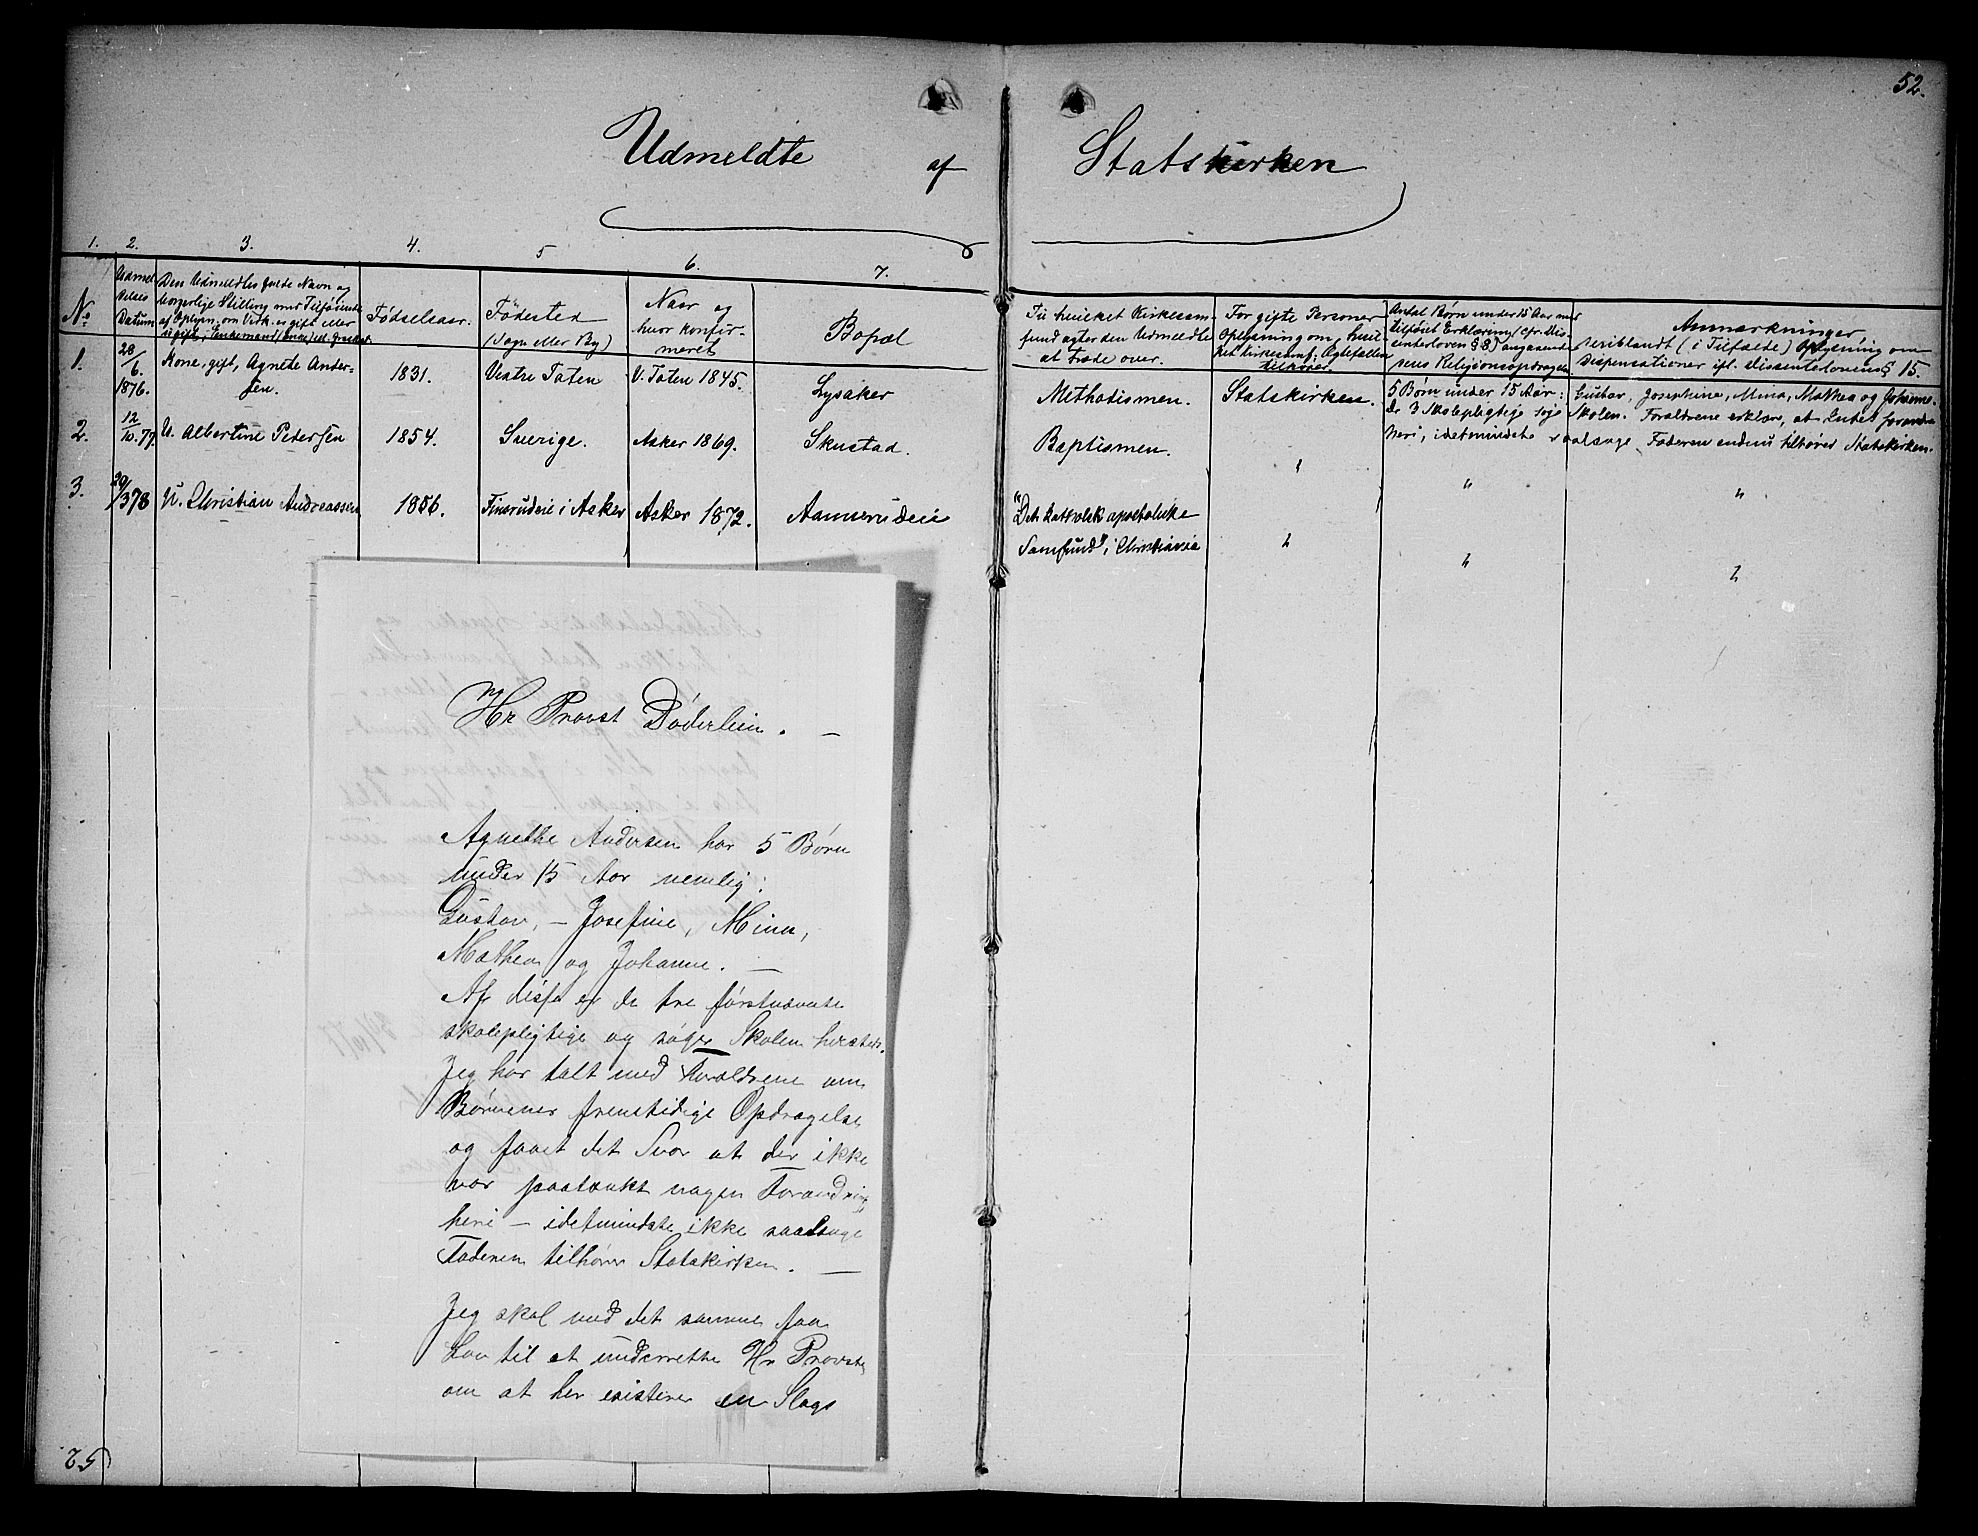 52.
Udmeldte af Statskirken
1. 2. 3. 4. 5 6. 7.
No
Udmeldelses Datum
Den Udmeldtes fulde Navn og
borgerlige Stilling med Tilføiende
af Oplysn. om Vedk. er gift eller
ugift, Enkemand (Enke) el. fraskilt
Fødselsaar.
Fødested
(Sogn eller By)
Naar og
hvor konfir-
meret
Bopæl
Til hvilket Kirkesam-
fund agter den Udmeldte
at træde over.
For gifte Personer
Oplysning om, hvil-
ket Kirkesamf. Ægtefællen
tilhører
Antal Børn under 15 Aar med
tilføiet Erklæring (cfr. Dis-
senterloven § 8) angaaende
deres Religionsopdragelse
Anmærkninger
deriblandt (i Tilfælde) Oplysning om
Dispensationer ifl. Dissenterlovens § 15.
1. 28/6. 1876. Kone, gift, Agnete Ander-
sen. 1831. Vestre Toten V. Toten 1845. Lysaker Methodismen. Statskirken. 5 Børn under 15 Aar: Gustav, Josephine, Mina, Mathea og Johanne.
De 3 skolepligtige søge Skolen. Forældrene erklære, at Intet forandres
heri, idetmindste saalænge Faderen endnu tilhører Statskirken.
2. 12/10. 77 U. Albertine Petersen 1854. Sverige. Asker 1869. Skustad. Baptismen. " " "
3. 29/3 78 U. Christian Andreassen 1856. Finsrudeie i Asker Asker 1872. Aamerudeie "Det katholsk apostoliske
Samfund" i Christiania " " "
Hr Provst Döderlein. —
Agnethe Andersen har 5 Børn
under 15 Aar nemlig:
Gustav, — Josefine, Mina,
Mathea og Johanne. —
Af disse er de tre førstnævnte
skolepligtige og søger Skolen hersteds.
Jeg har talt med Forældrene om
Børnenes fremtidige Opdragelse
og faaet det Svar at der ikke
var paatænkt nogen Forandring
heri — idetmindste ikke saalænge
Faderen tilhører Statskirken. —
Jeg skal med det samme faa
Lov til at underrette Hr Provsten
om at her existerer en Slags
52